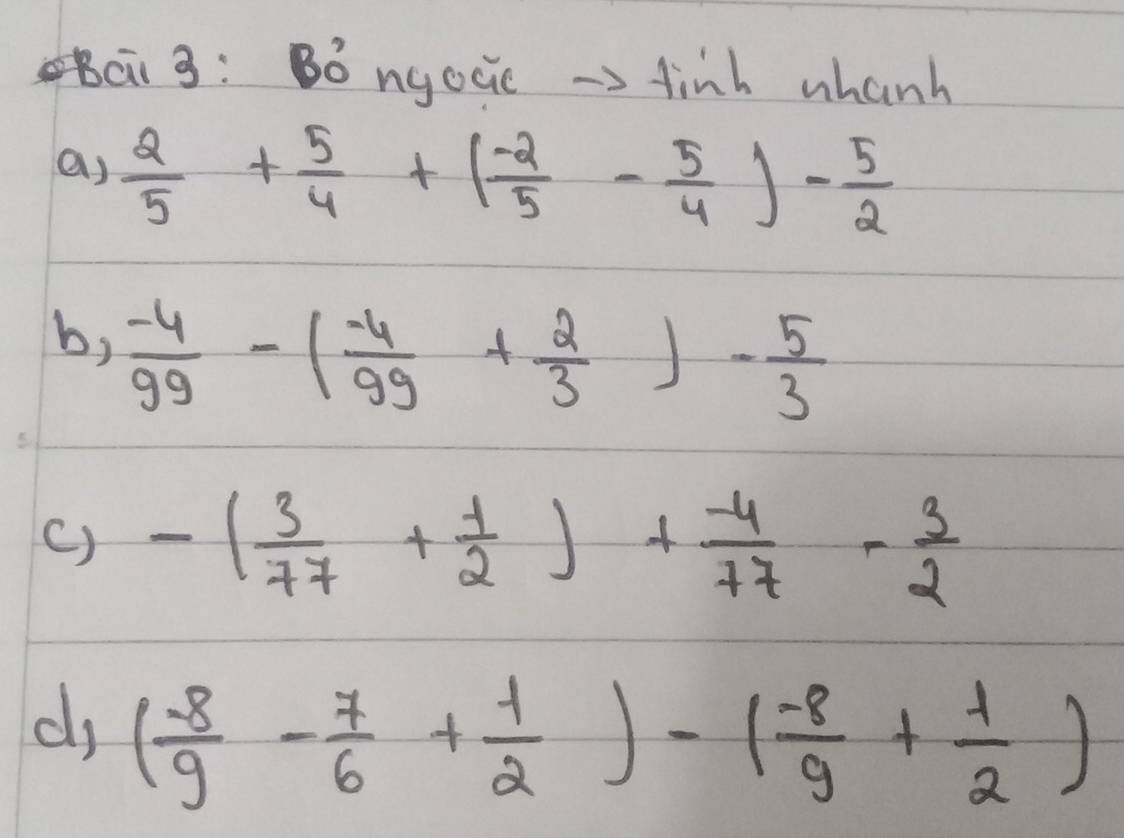 Bài 3: Bỏ ngoặc -> tính nhanh
a, 2/5 + 5/4 + (-2/5 - 5/4) - 5/2
b, -4/99 - (-4/99 + 2/3) - 5/3
c) - (3/77 + 1/2) + -4/77 - 3/2
d, (-8/9 - 7/6 + 1/2) - (-8/9 + 1/2)